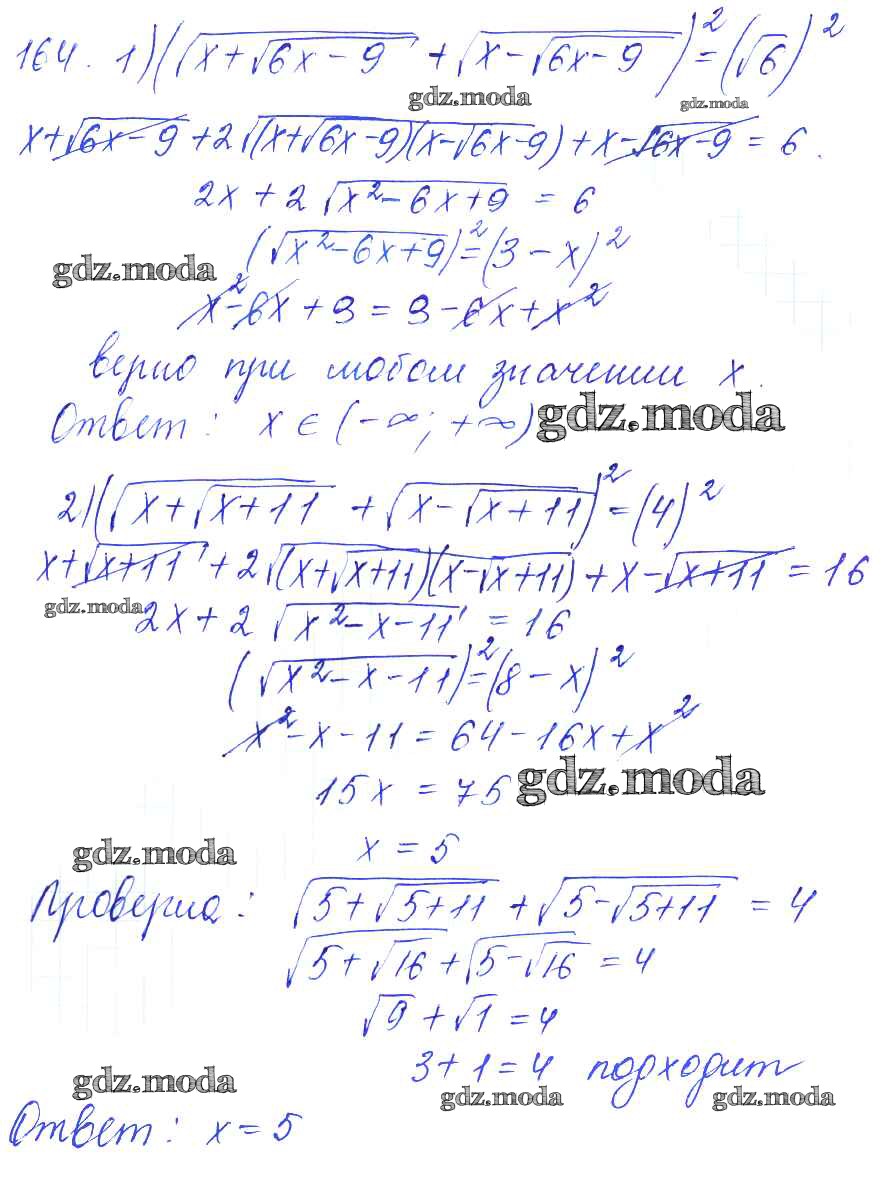 164. 1) (√(x+√(6x-9)) + √(x-√(6x-9)))² = (√6)²
gdz.moda gdz.moda
x+√(6x-9) + 2√((x+√(6x-9))(x-√(6x-9))) + x-√(6x-9) = 6.
2x + 2 √(x²-6x+9) = 6
(√(x²-6x+9))² = (3-x)²
gdz.moda
x²-6x+9 = 9-6x+x²
верно при любом значении x.
Ответ: x ∈ (-∞; +∞) gdz.moda
2) (√(x+√(x+11)) + √(x-√(x+11)))² = (4)²
x+√(x+11) + 2√((x+√(x+11))(x-√(x+11))) + x-√(x+11) = 16
gdz.moda 2x + 2 √(x²-x-11) = 16
(√(x²-x-11))² = (8-x)²
x²-x-11 = 64-16x+x²
15x = 75 gdz.moda
gdz.moda x = 5
Проверка: √(5+√(5+11)) + √(5-√(5+11)) = 4
√(5+√16) + √(5-√16) = 4
√9 + √1 = 4
3+1=4 подходит
gdz.moda gdz.moda gdz.moda
Ответ: x = 5